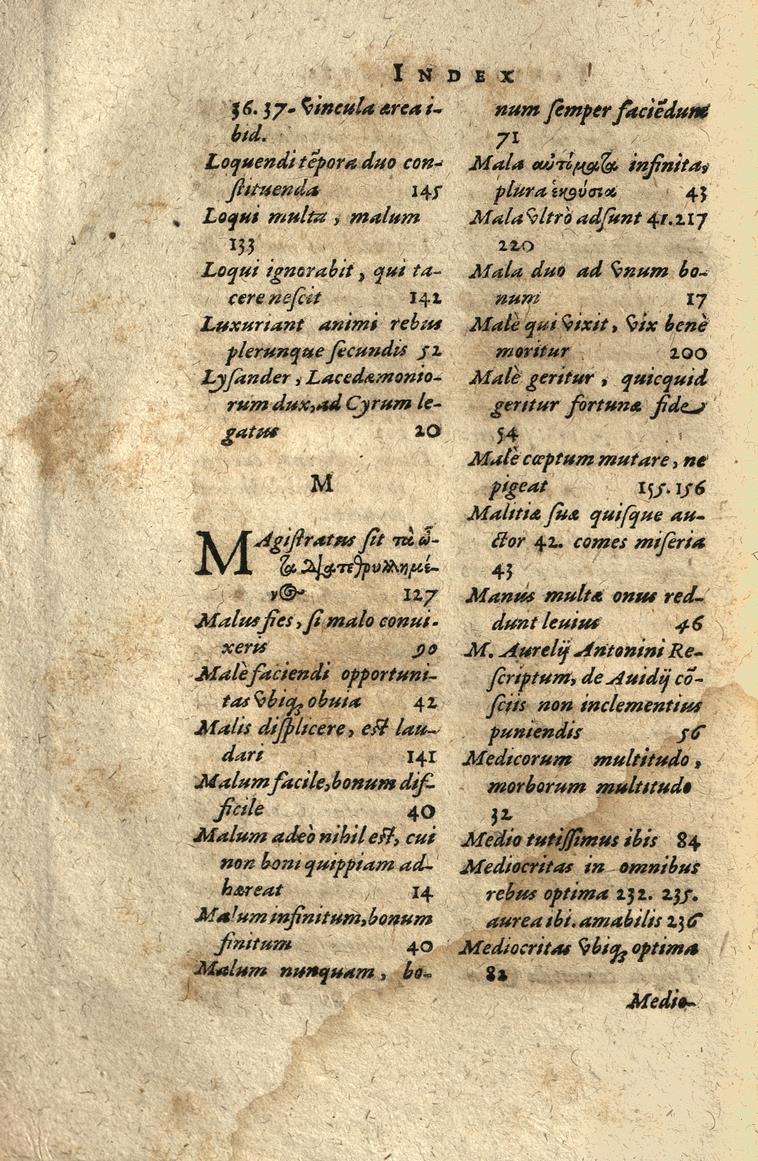 INDEX
36. 37. Vincula ærea i-
bid.
Loquendi tẽpora duo con-
ſtituenda 145
Loqui multa, malum
133
Loqui ignorabit, qui ta-
cere neſcit 142
Luxuriant animi rebus
plerunque ſecundis 52
Lyſander, Lacedæmonio-
rum dux, ad Cyrum le-
gatus 20
M
MAgiſtratus ſit τὰ ὦ-
τα
127
Malus fies, ſi malo conui-
xeris 90
Malè faciendi opportuni-
tas vbiq; obuia 42
Malis diſplicere, eſt lau-
dari 141
Malum facile, bonum dif-
ficile 40
Malum adeò nihil eſt, cui
non boni quippiam ad-
hæreat 14
Malum infinitum, bonum
finitum 40
Malum nunquam, bo-
num ſemper faciẽdum
71
Mala infinita,
plura 43
Mala vltrò adſunt 41.217
220
Mala duo ad vnum bo-
num 17
Malè qui vixit, vix benè
moritur 200
Malè geritur, quicquid
geritur fortunæ fide
54
Malè cœptum mutare, ne
pigeat 155.156
Malitiæ ſuæ quiſque au-
ctor 42. comes miſeria
43
Manus multæ onus red-
dunt leuius 46
M. Aurelij Antonini Re-
ſcriptum, de Auidij cõ-
ſciis non inclementius
puniendis 56
Medicorum multitudo,
morborum multitudo
32
Medio tutiſſimus ibis 84
Mediocritas in omnibus
rebus optima 232. 235.
aurea ibi. amabilis 236
Mediocritas vbiq; optima
82
Medio-